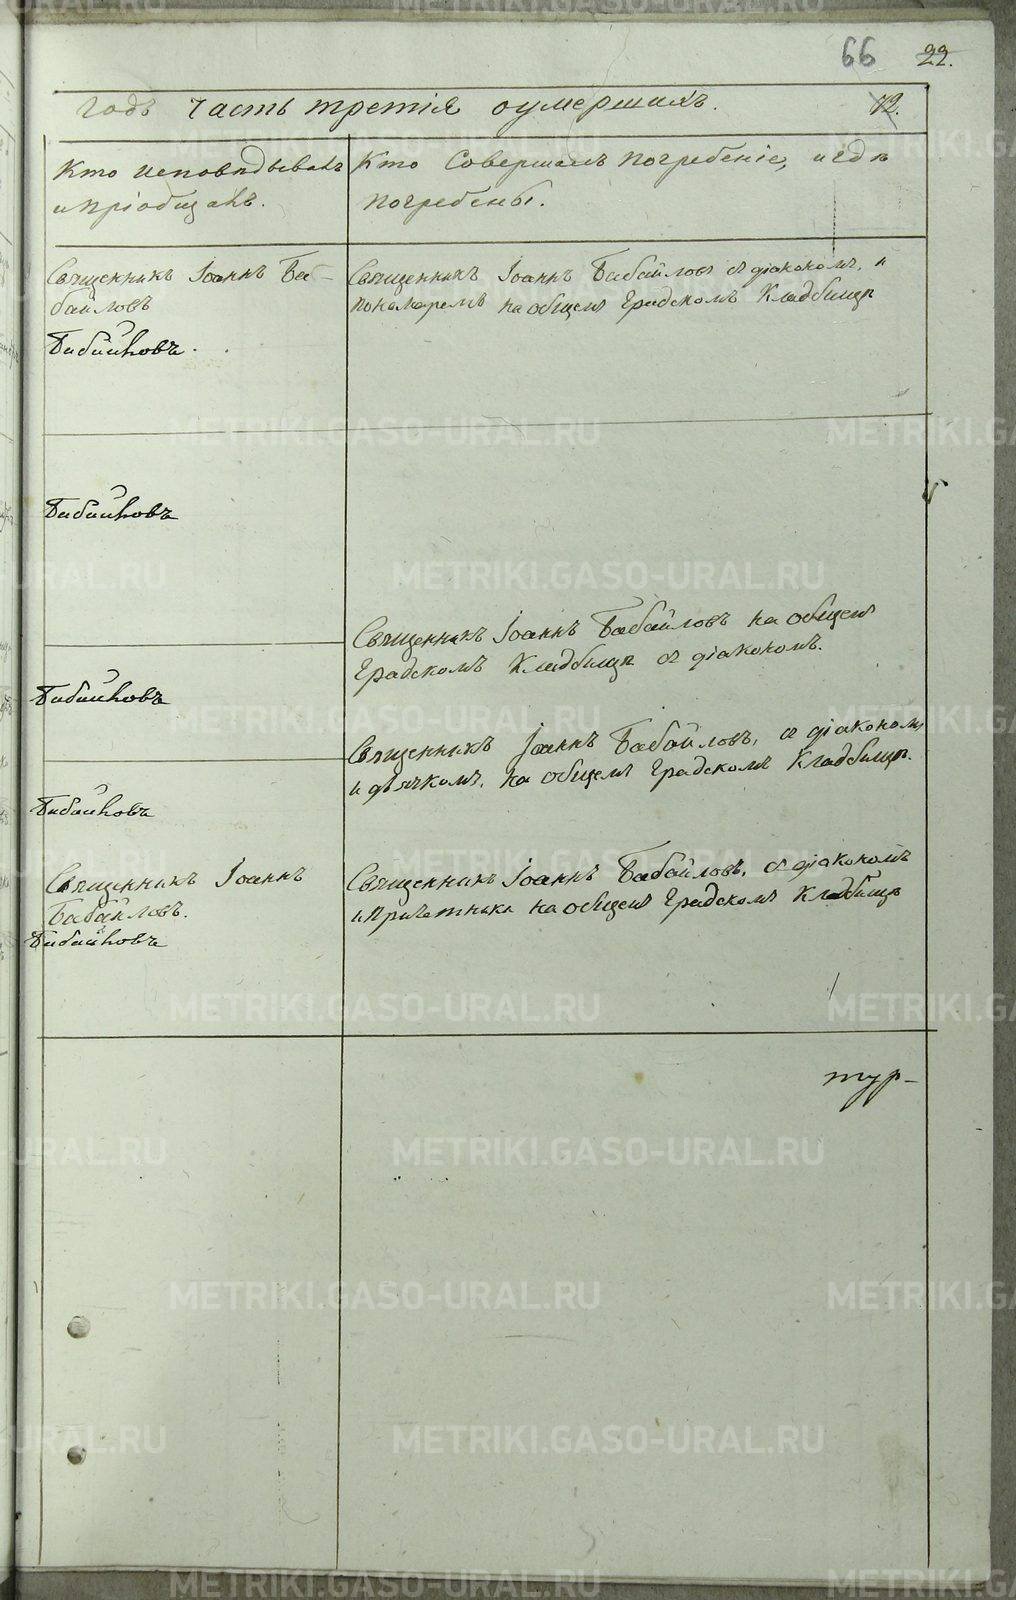 66 22.
годъ часть третія оумершихъ. 12.
Кто исповѣдывалъ
и пріобщалъ.
Кто Совершалъ погребеніе, и гдѣ
погребены.
Священникъ Іоаннъ Ба-
байловъ
Священникъ Іоаннъ Бабайловъ съ діакономъ, и
пономаремъ на общемъ Градскомъ Кладбищѣ
Священникъ Іоаннъ Бабайловъ на общемъ
Градскомъ Кладбищѣ съ діакономъ.
Священникъ Іоаннъ Бабайловъ, съ діакономъ
и дьячкомъ, на общемъ Градскомъ Кладбищѣ.
Священникъ Іоаннъ
Бабайловъ.
Священникъ Іоаннъ Бабайловъ, съ діакономъ
и причетники на общемъ Градскомъ Кладбищѣ
тур-
METRIKI.GASO-URAL.RU